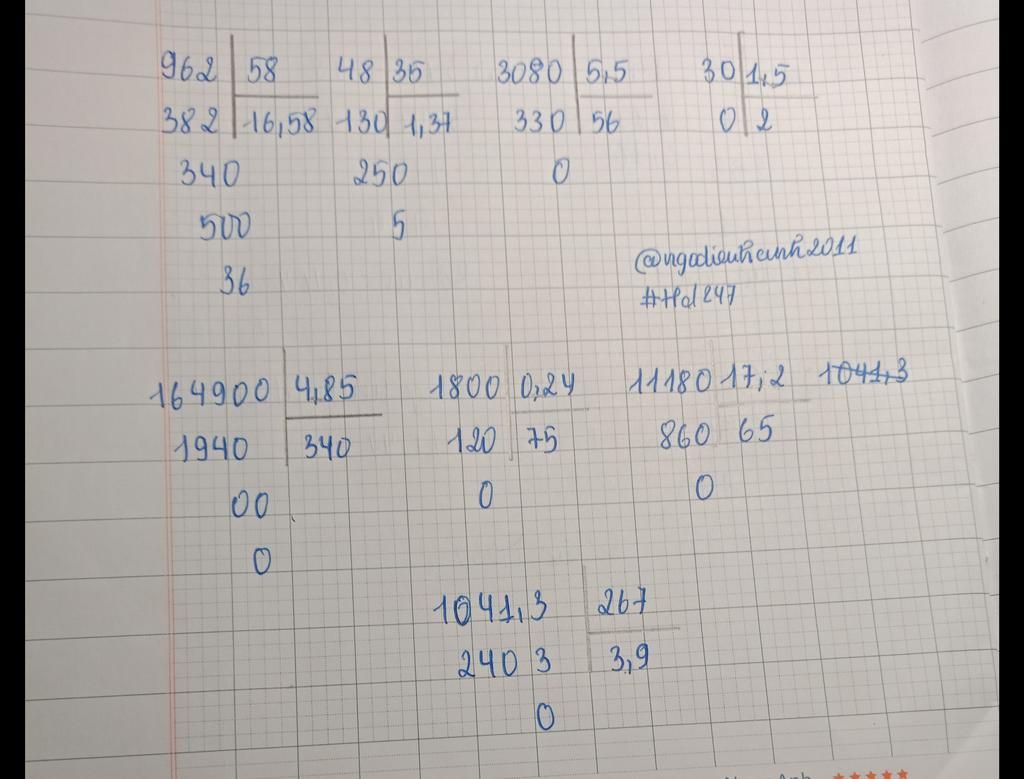 962 58 48 35 3080 5,5 30 1,5
382 16,58 130 1,37 330 56 0 2
340 250 0
500 5
36
@ngodieuhanh2011
#Hd247
164900 4,85 1800 0,24 11180 17,2 1041,3
1940 340 120 75 860 65
00 0 0
0
1041,3 267
240 3 3,9
0